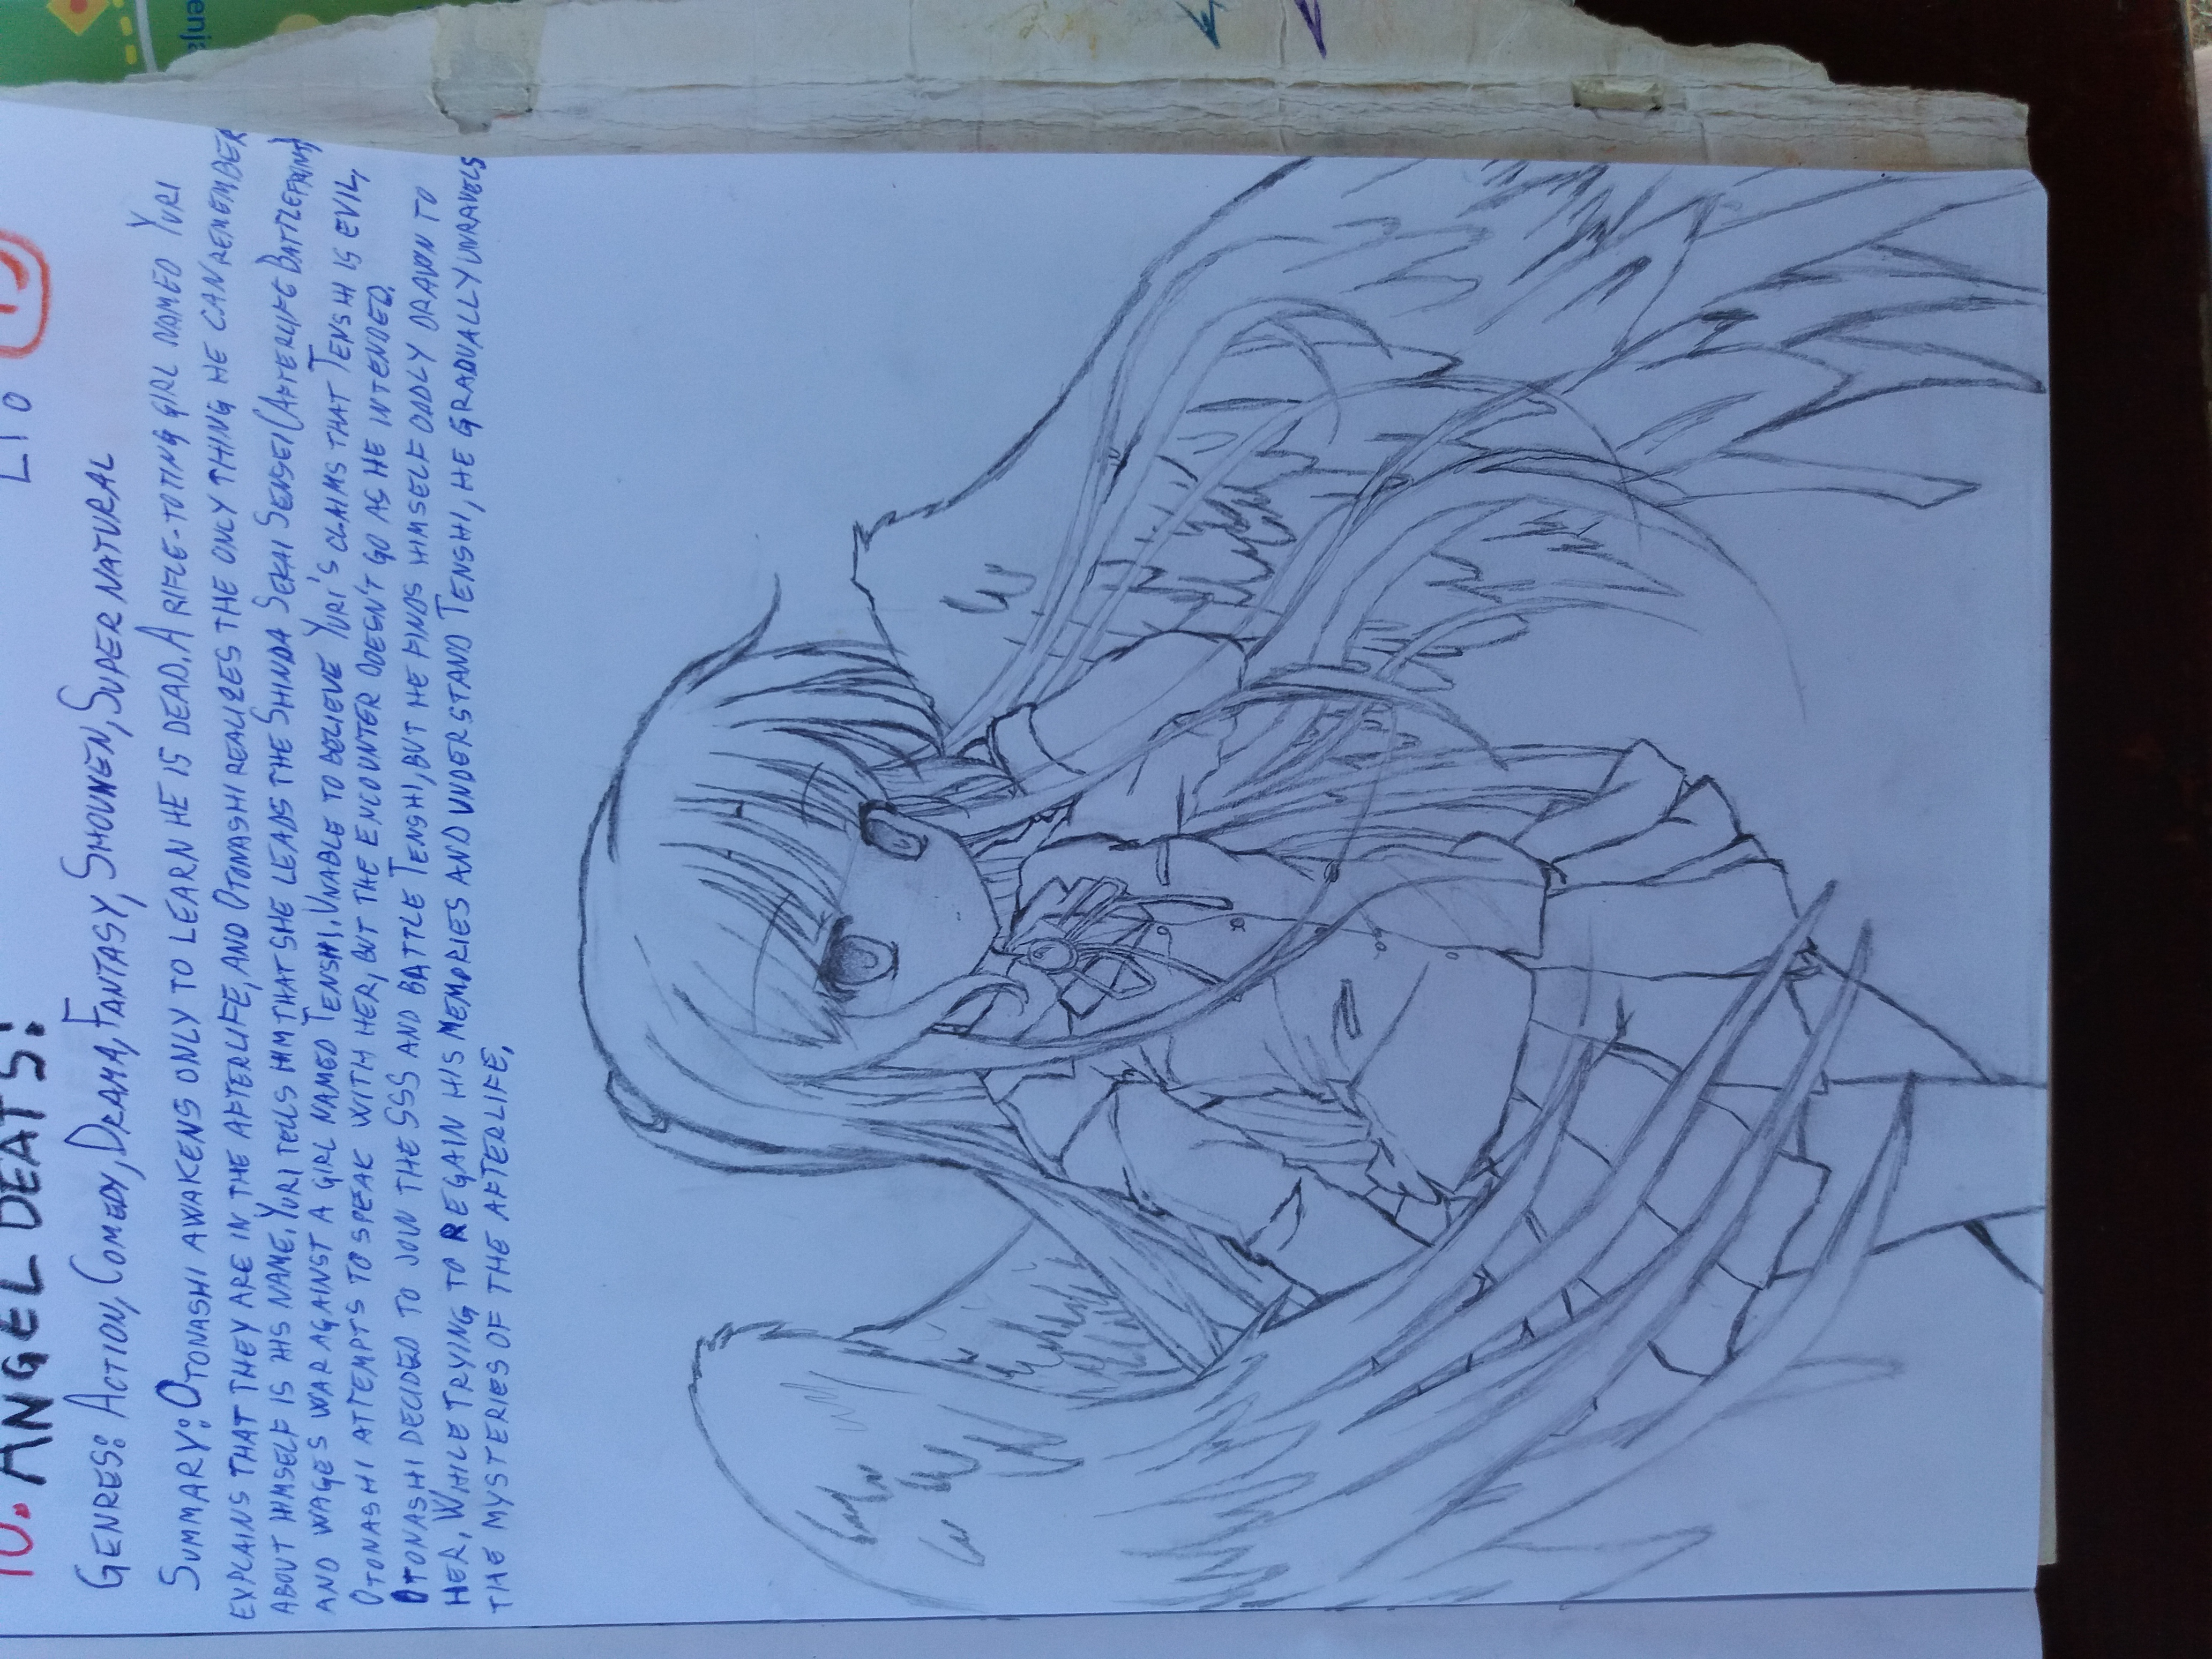 10. ANGEL BEATS!
GENRES: ACTION, COMEDY, DRAMA, FANTASY, SHOUNEN, SUPER NATURAL
SUMMARY: OTONASHI AWAKENS ONLY TO LEARN HE IS DEAD. A RIFLE-TOTING GIRL NAMED YURI
EXPLAINS THAT THEY ARE IN THE AFTERLIFE, AND OTONASHI REALIZES THE ONLY THING HE CAN REMEMBER
ABOUT HIMSELF IS HIS NAME. YURI TELLS HIM THAT SHE LEADS THE SHINDA SEKAI SENSEI (AFTERLIFE BATTLEFRONT)
AND WAGES WAR AGAINST A GIRL NAMED TENSHI. UNABLE TO BELIEVE YURI'S CLAIMS THAT TENSHI IS EVIL,
OTONASHI ATTEMPTS TO SPEAK WITH HER, BUT THE ENCOUNTER DOESN'T GO AS HE INTENDED.
OTONASHI DECIDED TO JOIN THE SSS AND BATTLE TENSHI, BUT HE FINDS HIMSELF ODDLY DRAWN TO
HER. WHILE TRYING TO REGAIN HIS MEMORIES AND UNDERSTAND TENSHI, HE GRADUALLY UNRAVELS
THE MYSTERIES OF THE AFTERLIFE.